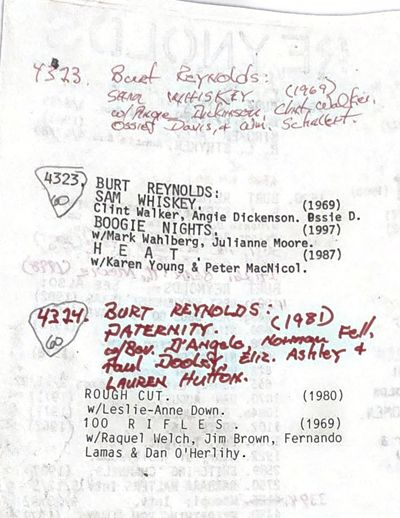 REYNOLDS
4323. Burt Reynolds:
SAM WHISKEY (1969)
w/Angie Dickinson, Clint Walker,
Ossie Davis, & Wm. Schallert.
4323 BURT REYNOLDS:
60 SAM WHISKEY. (1969)
Clint Walker, Angie Dickenson. Ossie D.
BOOGIE NIGHTS. (1997)
w/Mark Wahlberg, Julianne Moore.
H E A T . (1987)
w/Karen Young & Peter MacNicol.
4324. BURT REYNOLDS:
60 PATERNITY. (1981)
w/Bev. D'Angelo, Norman Fell,
Paul Dooley, Eliz. Ashley &
LAUREN HUTTON.
ROUGH CUT. (1980)
w/Leslie-Anne Down.
100 R I F L E S . (1969)
w/Raquel Welch, Jim Brown, Fernando
Lamas & Dan O'Herlihy.